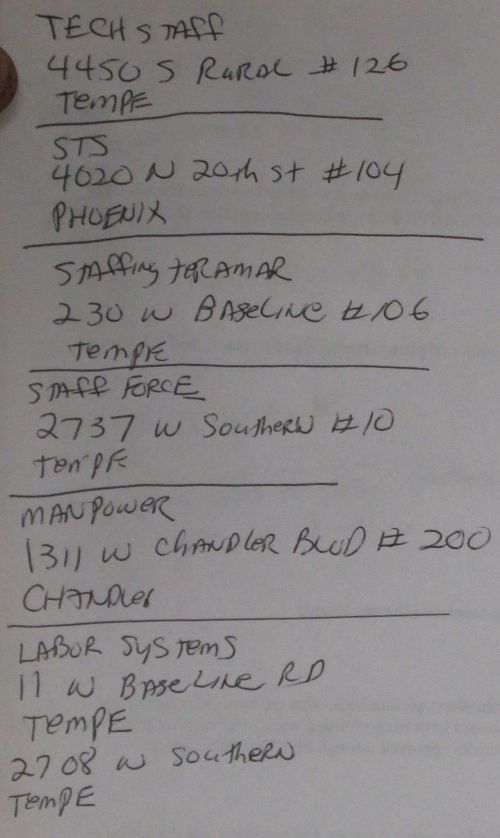 TECH STAFF
4450 S RURAL # 126
TEMPE
STS
4020 N 20th St #104
PHOENIX
STAFFing TERAMAR
230 W BASELINE #106
TEMPE
STAFF FORCE
2737 W Southern #10
TEMPE
MANPOWER
1311 W CHANDLER BLVD # 200
CHANDLER
LABOR SYSTEMS
11 W BASELINE RD
TEMPE
2708 W Southern
TEMPE